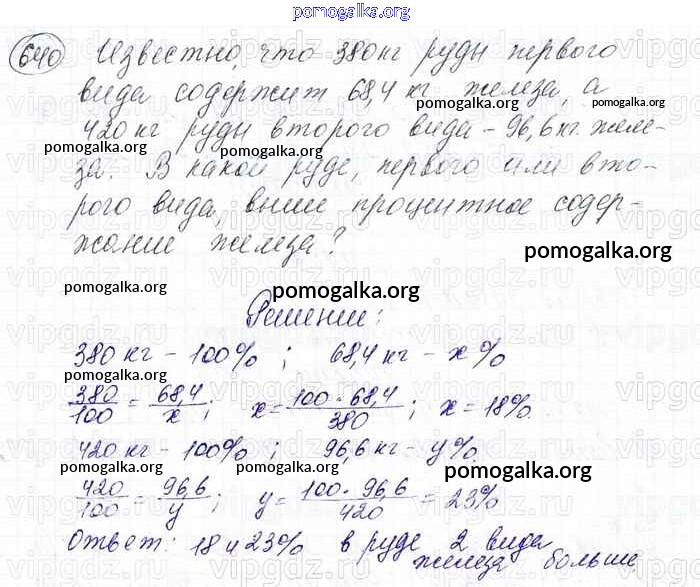 pomogalka.org
640 Известно, что 380 кг руды первого
вида содержит 68,4 кг железа, а
pomogalka.org pomogalka.org
420 кг руды второго вида - 96,6 кг. желе-
pomogalka.org pomogalka.org
за. В какой руде, первого или вто-
рого вида, выше процентное содер-
жание железа?
pomogalka.org
pomogalka.org pomogalka.org
Решение:
380 кг - 100% ; 68,4 кг - x %
pomogalka.org pomogalka.org
380/100 = 68,4/x ; x = 100 · 68,4/380 ; x = 18%.
420 кг - 100% ; 96,6 кг - y%.
pomogalka.org pomogalka.org pomogalka.org
420/100 = 96,6/y ; y = 100 · 96,6/420 = 23%
Ответ: 18 и 23% в руде 2 вида
железа больше.